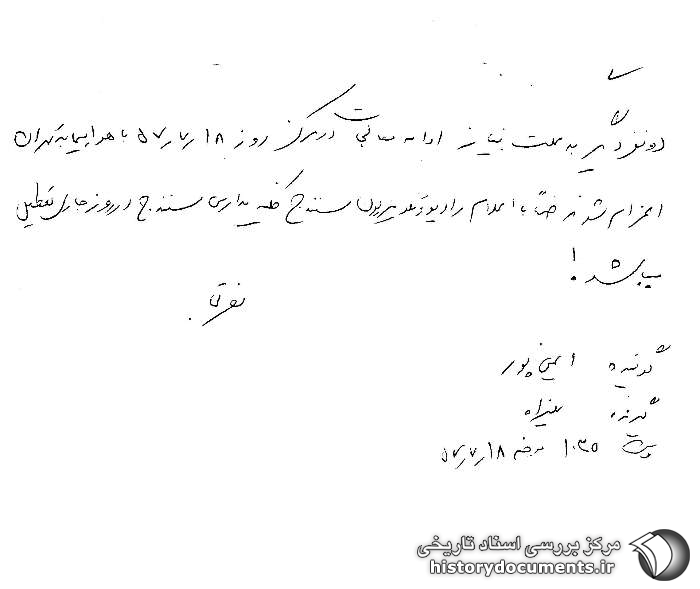 دو نفر دیگر به علت نیاز ادامه معالجات در مرکز روز ۱۸ر۷ر۵۷ با هواپیما به تهران
اعزام شدند ضمناً با اعلام رادیو و تلویزیون سنندج کلیه مدارس سنندج در روز جاری تعطیل
میباشد!
گوینده ایمنی پور
گیرنده علیزاده
ساعت ۱۰۳۵ مورخه ۱۸ر۷ر۵۷
مرکز بررسی اسناد تاریخی
historydocuments.ir